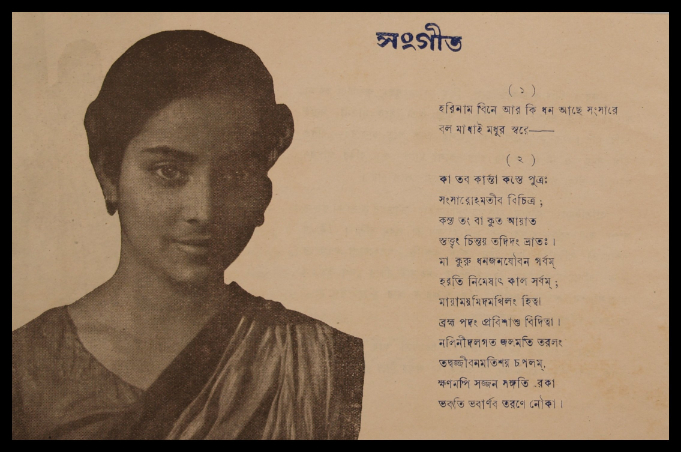 সংগীত
( ১ )
হরিনাম বিনে আর কি ধন আছে সংসারে
বল মাধাই মধুর স্বরে——
( ২ )
কা তব কান্তা কস্তে পুত্রঃ
সংসারোহমতীব বিচিত্র ;
কস্ত তং বা কুত আয়াত
স্তত্ত্বং চিন্তয় তদিদং ভ্রাতঃ ।
মা কুরু ধনজনযৌবন গর্বম্
হরতি নিমেষাৎ কাল সর্বম্ ;
মায়াময়মিদমখিলং হিত্বা
ব্রহ্ম পদং প্রবিশাশু বিদিত্বা ।
নলিনীদলগত জলমতি তরলং
তদ্বজ্জীবনমতিশয় চপলম্,
ক্ষণমপি সজ্জন সঙ্গতি রেকা
ভবতি ভবার্ণব তরণে নৌকা ।